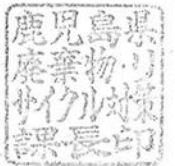 鹿児島県
廃棄物・リ
サイクル対策
課長印